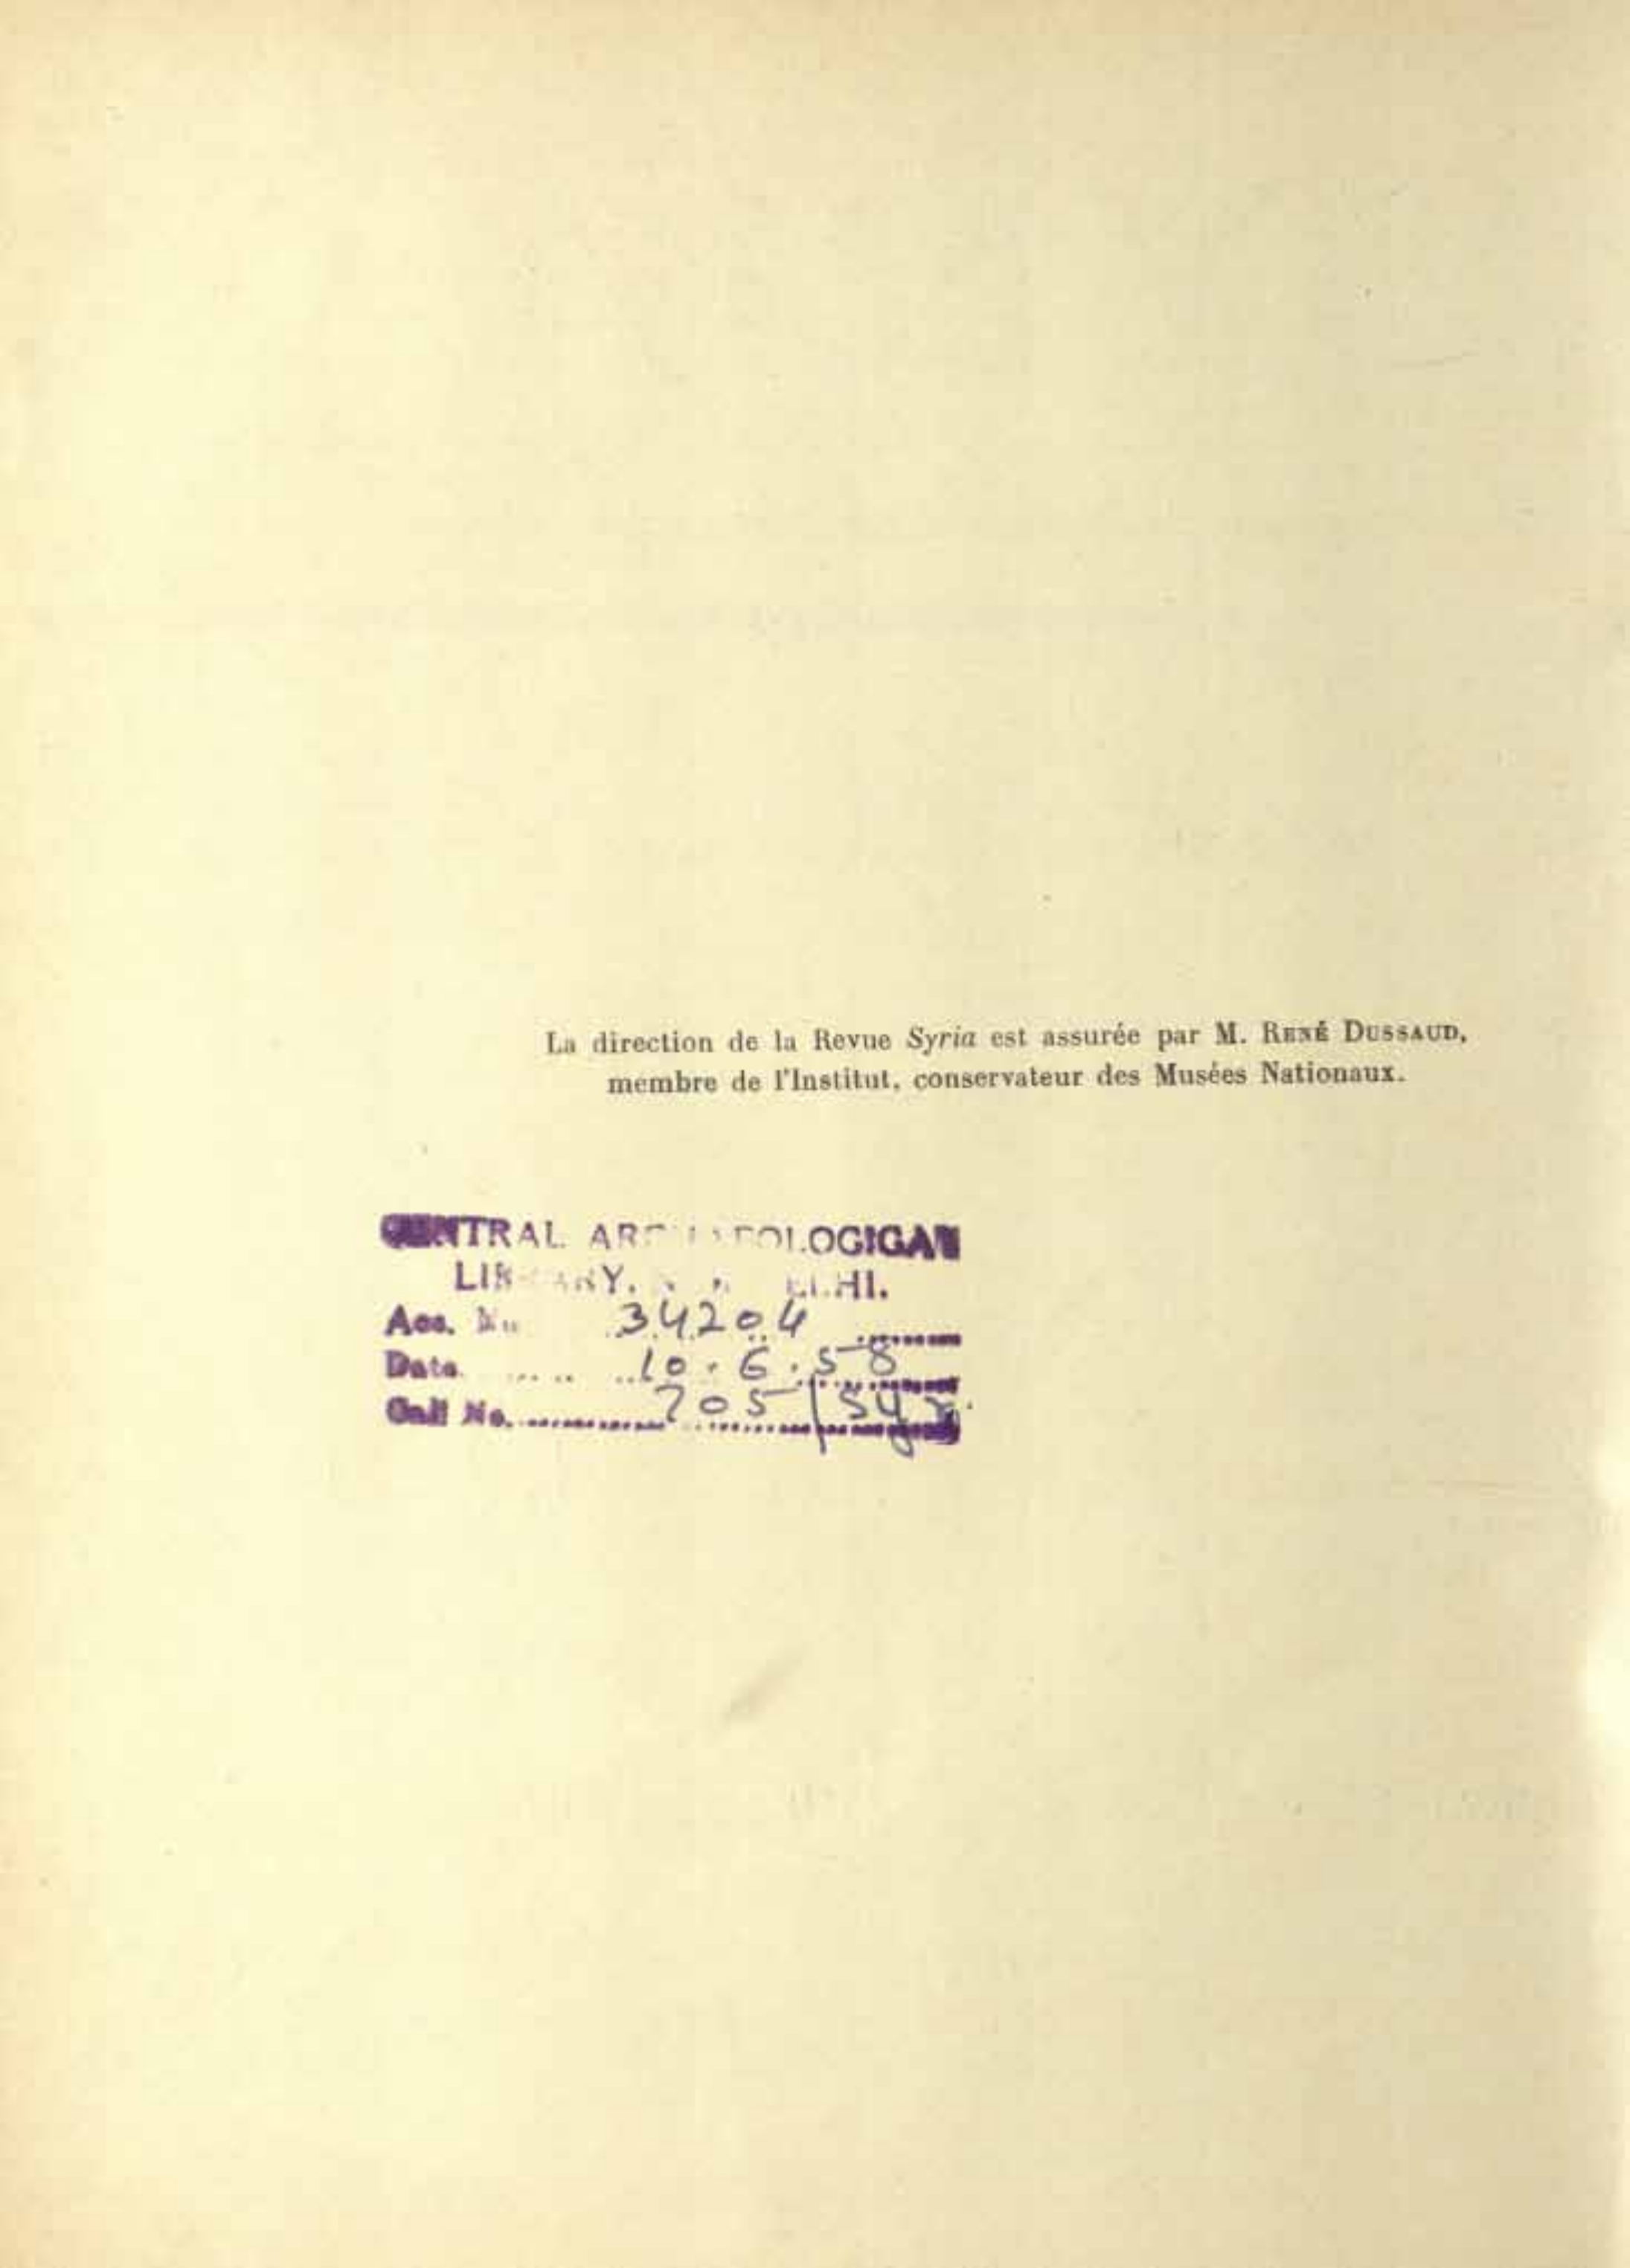 La direction de la Revue Syria est assurée par M. RENÉ DUSSAUD,
membre de l'Institut, conservateur des Musées Nationaux.
CENTRAL ARCHAEOLOGIGAL
LIBRARY,
Acc. No. 34204
Date. 10.6.58
Call No. 705/Syr.